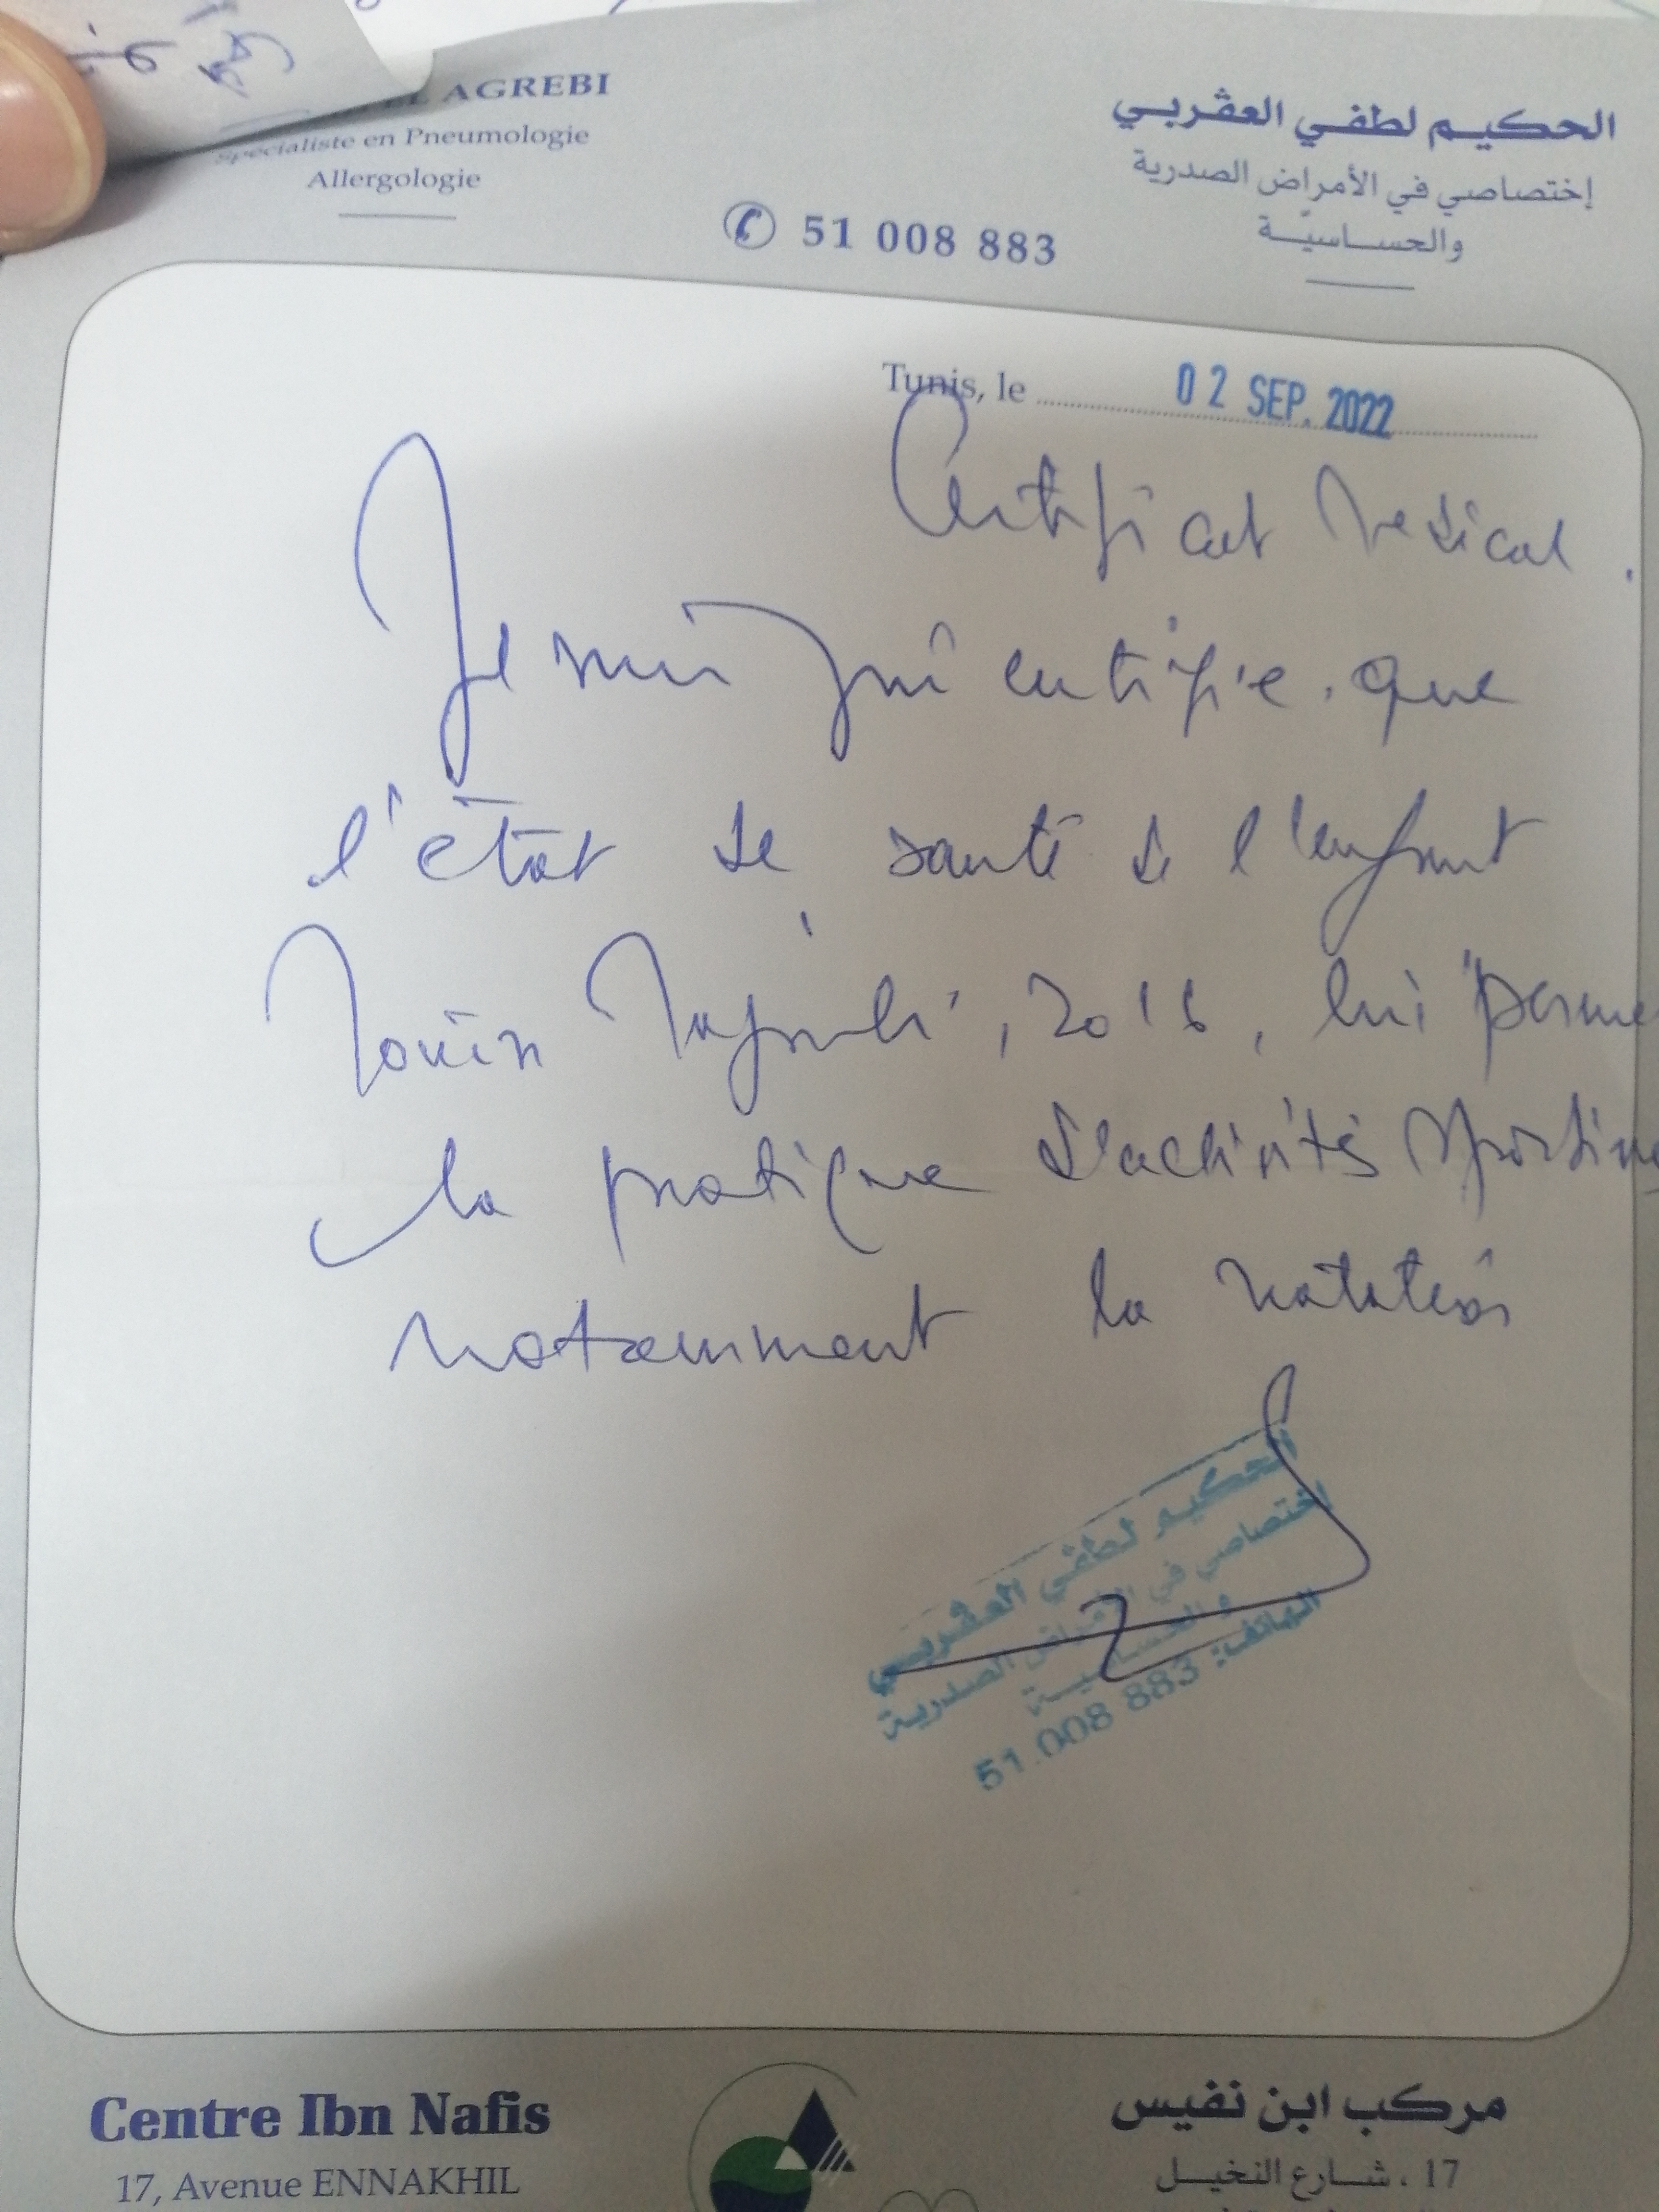 AGREBI
Spécialiste en Pneumologie
Allergologie
الحكيم لطفي العڤربي
إختصاصي في الأمراض الصدرية
والحساسيّة
51 008 883
Tunis, le 02 SEP. 2022
Certificat Medical.
Je certifie que
l'état de santé de l'enfant
2016, lui perme
la pratique d'activités sportive
notamment la natation
الحكيم لطفي العڤربي
اختصاصي في الأمراض الصدرية
والحساسية
الهاتف: 51.008 883
Centre Ibn Nafis
مركب ابن نفيس
17, Avenue ENNAKHIL
17 ، شارع النخيل